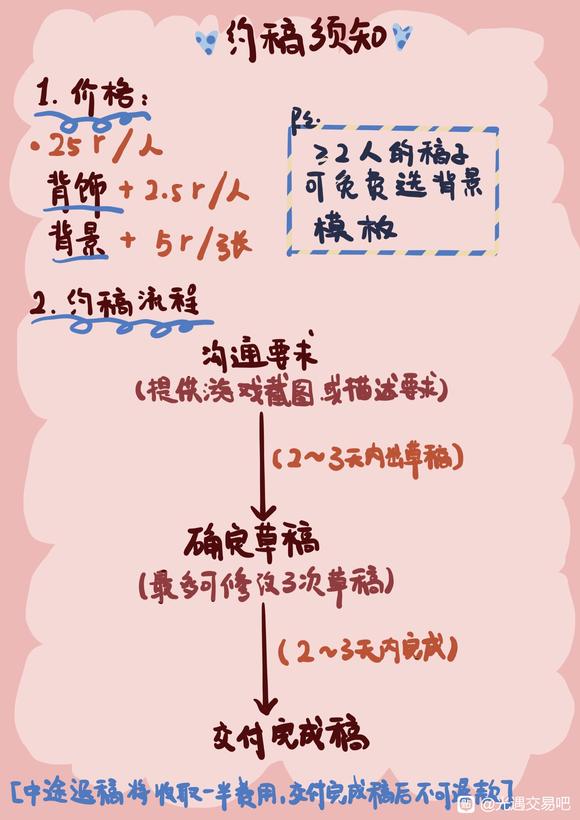 约稿须知
1. 价格:
• 25r/人
背饰 + 2.5r/人
背景 + 5r/张
Ps.
≥2人的稿子
可免费选背景
模板
2. 约稿流程
沟通要求
(提供游戏截图或描述要求)
(2~3天内出草稿)
确定草稿
(最多可修改3次草稿)
(2~3天内完成)
交付完成稿
[中途退稿将收取一半费用,交付完成稿后不可退款]
贴 @光遇交易吧